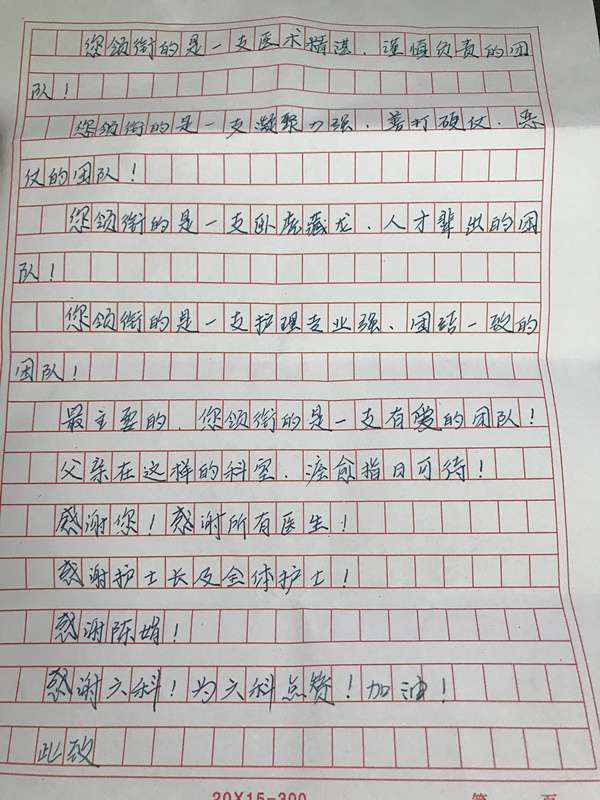 您领衔的是一支医术精湛、谨慎负责的团
队！
您领衔的是一支凝聚力强、善打硬仗、恶
仗的团队！
您领衔的是一支卧虎藏龙、人才辈出的团
队！
您领衔的是一支护理专业强、团结一致的
团队！
最主要的、您领衔的是一支有爱的团队！
父亲在这样的科室、痊愈指日可待！
感谢您！感谢所有医生！
感谢护士长及全体护士！
感谢陈娟！
感谢六科！为六科点赞！加油！
此致
20X15=300
第 页